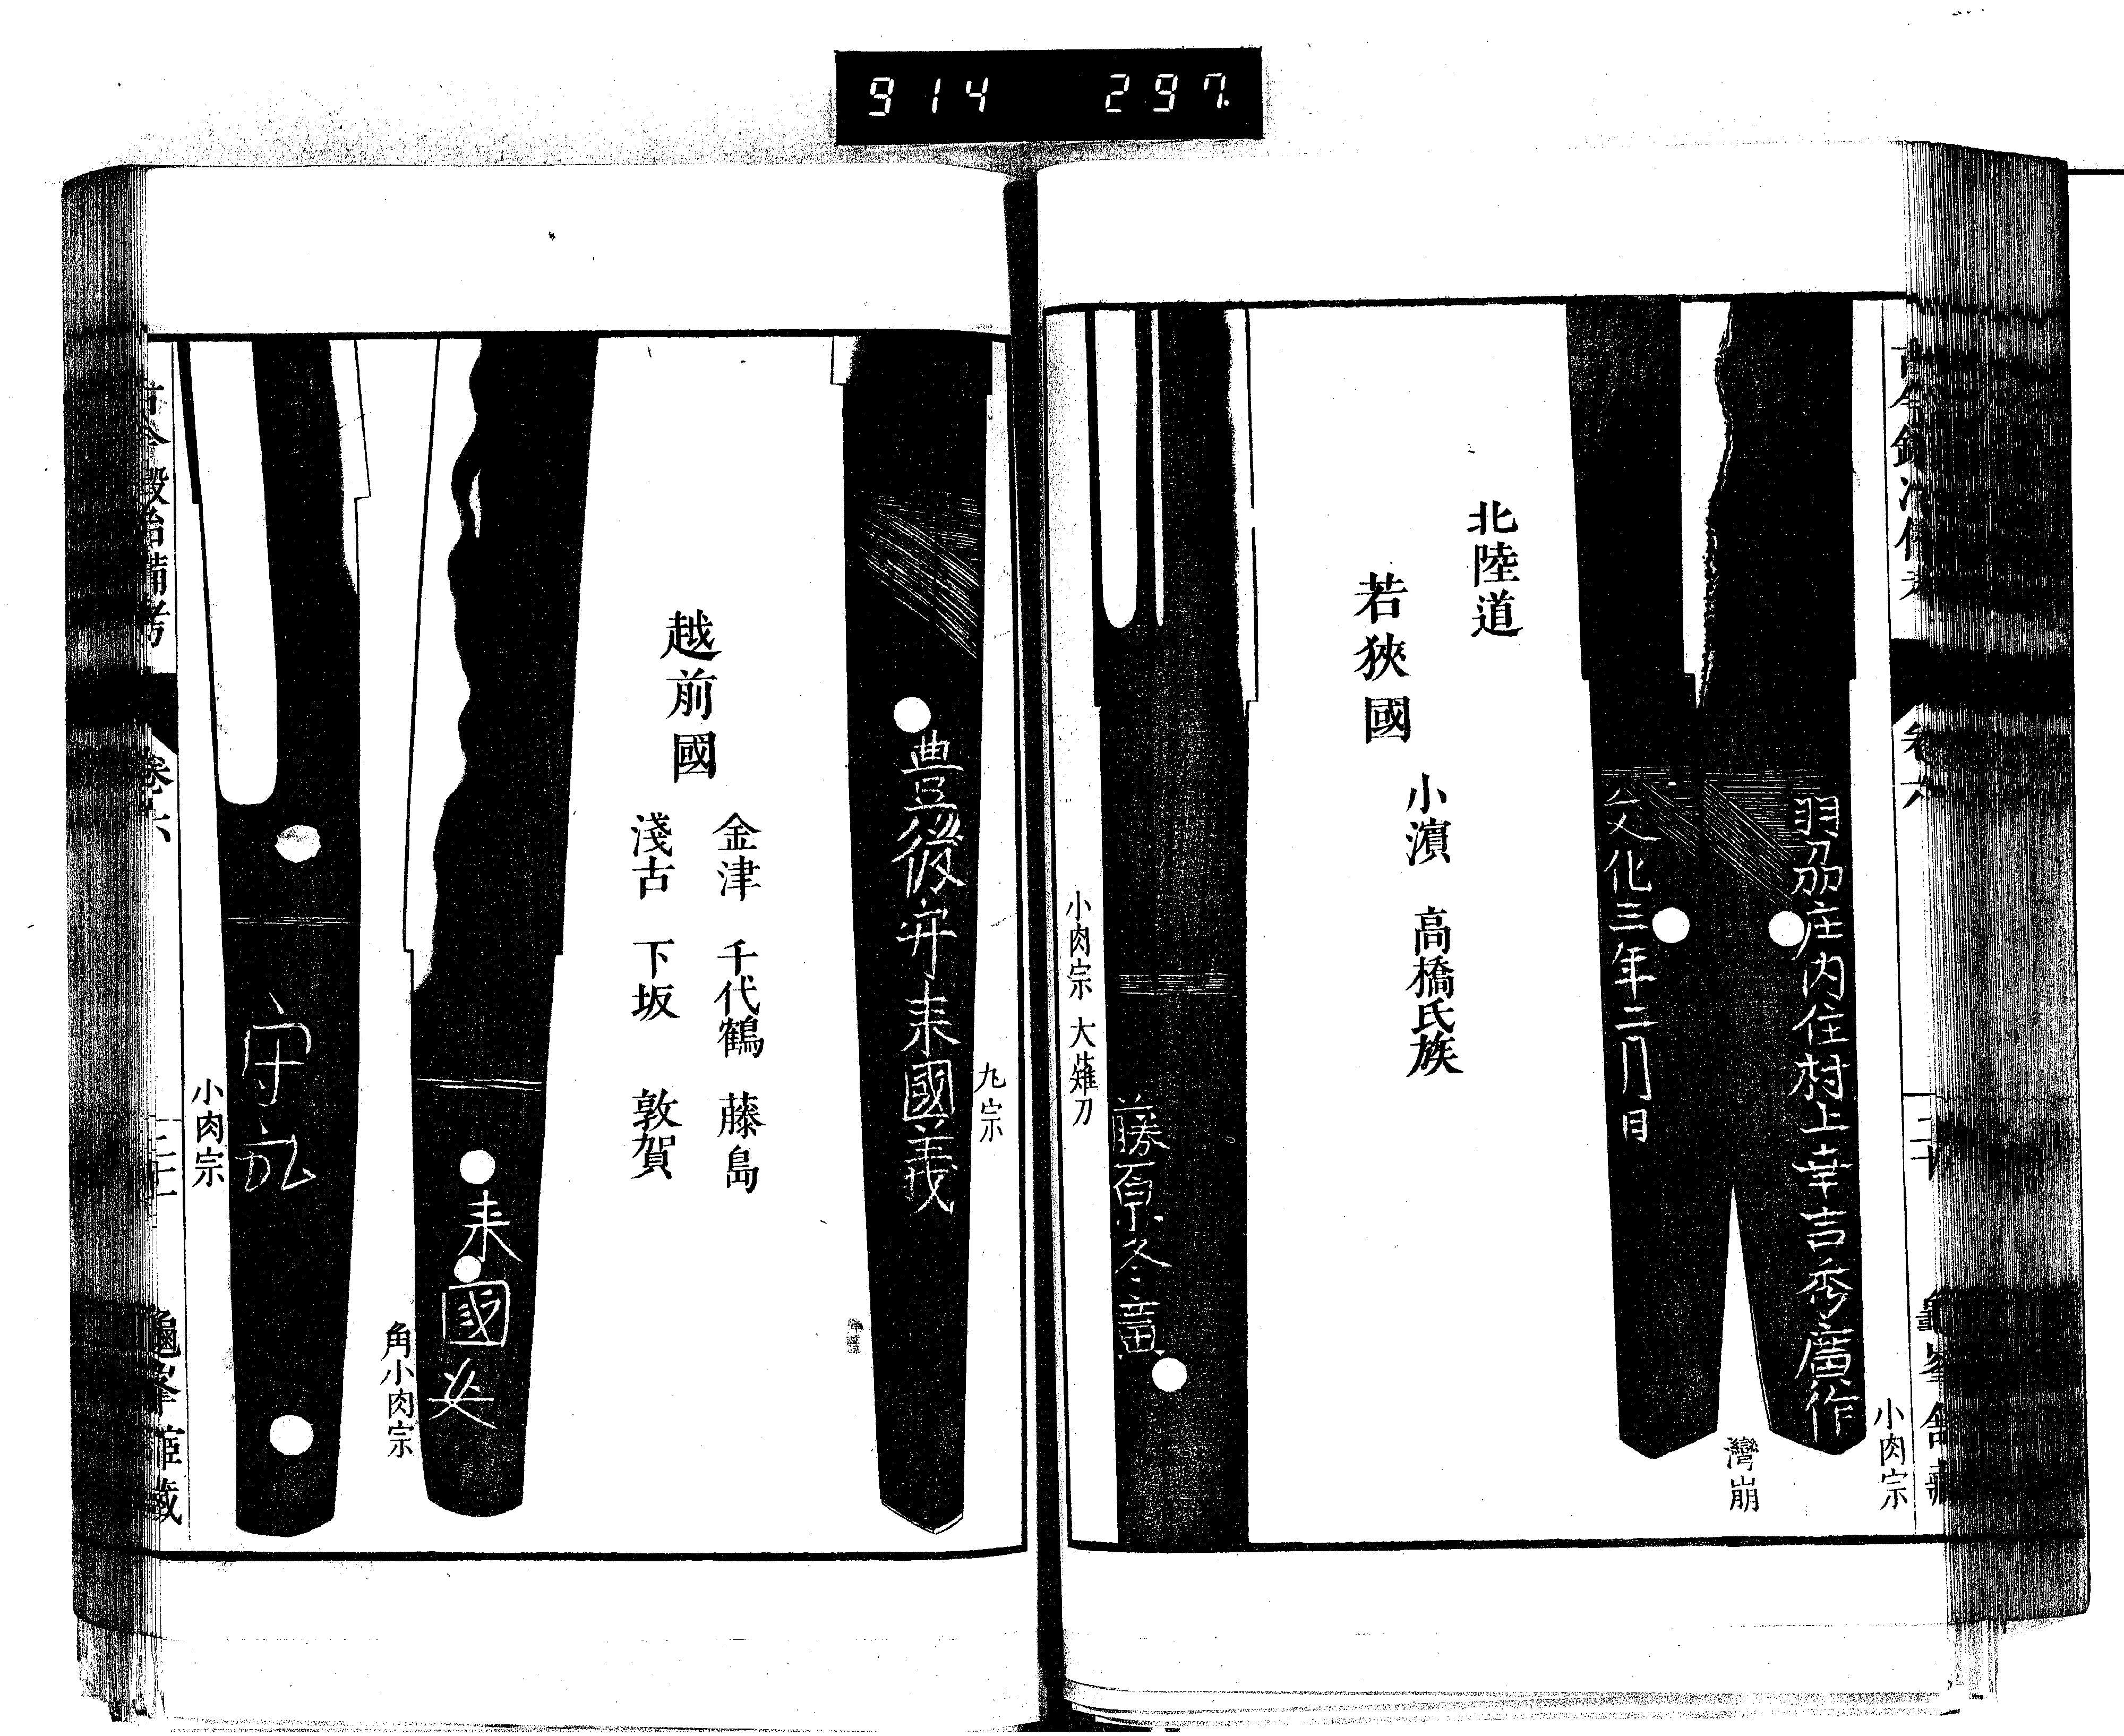 914 297
古今鍛冶備考
卷六
小肉宗
羽劦庄内住村上幸吉秀廣作
灣崩
文化三年二月日
北陸道
若狹國
小濵 高橋氏族
藤原冬廣
小肉宗 大薙刀
九宗
豊後守来國義
越前國
金津 千代鶴 藤島
淺古 下坂 敦賀
来國
角小肉宗
守
小肉宗
古今鍛冶備考
卷六